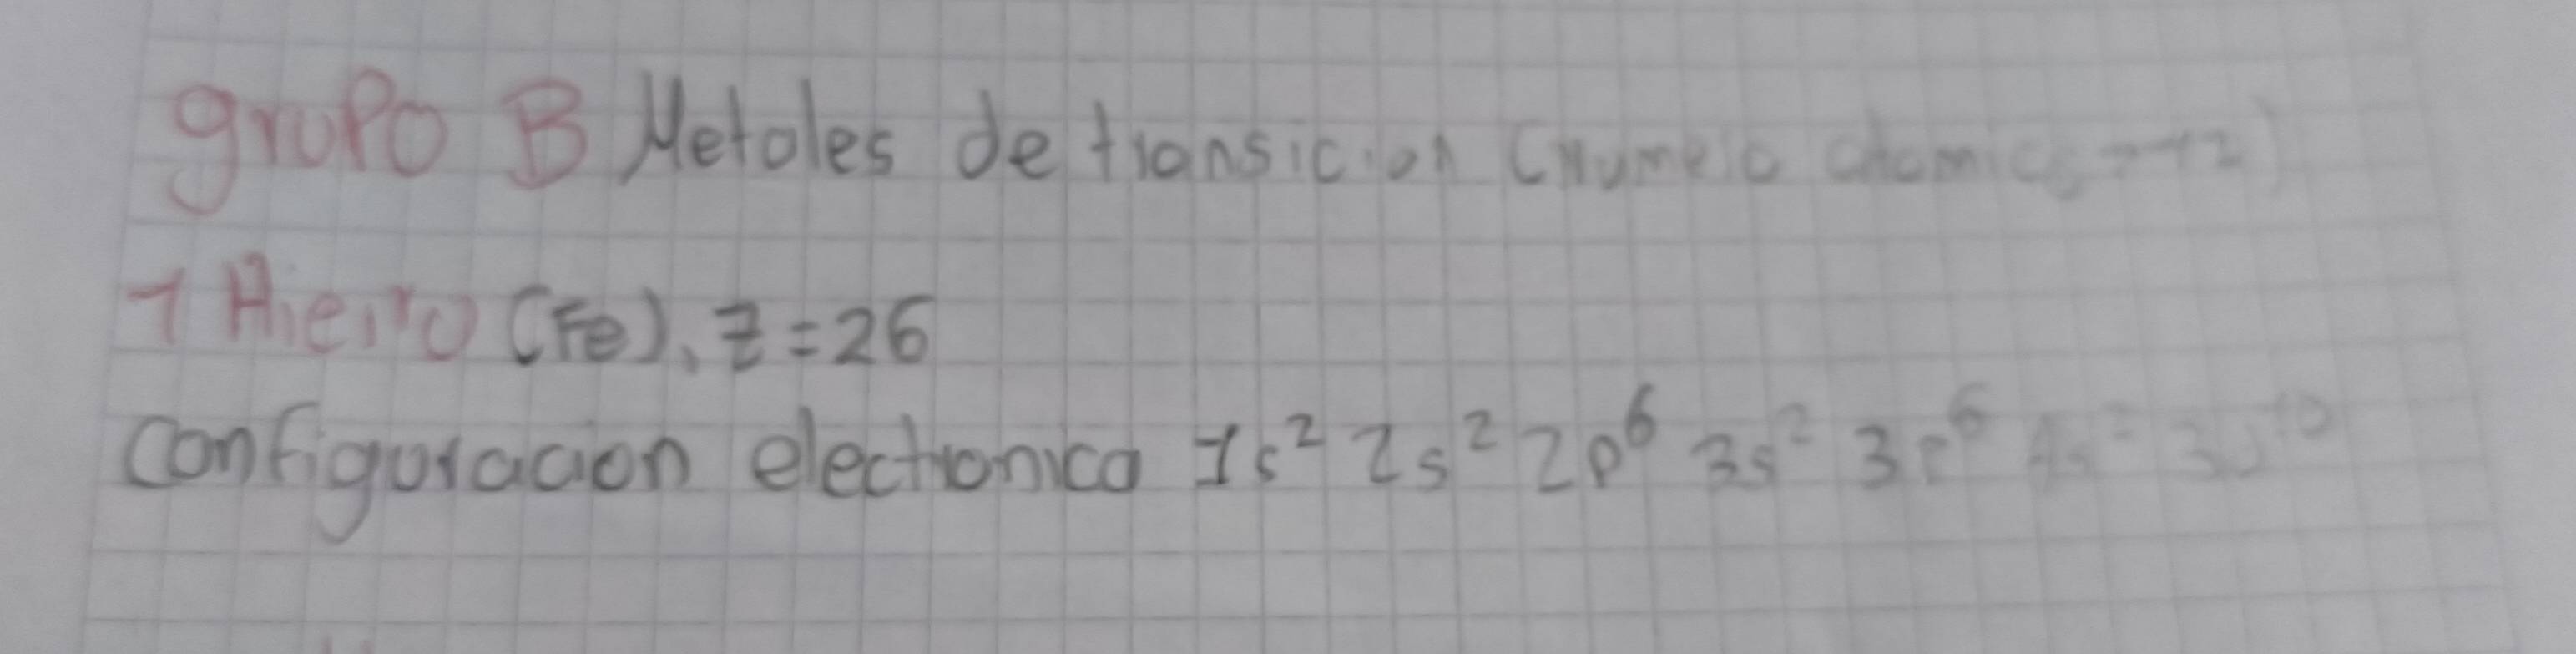 grupo B Metales de transicion (Numero atomico
1 Hierro (Fe), Z=26
configuracion electronica 1s² 2s² 2p⁶ 3s² 3p⁶ 4s² 3d¹⁰